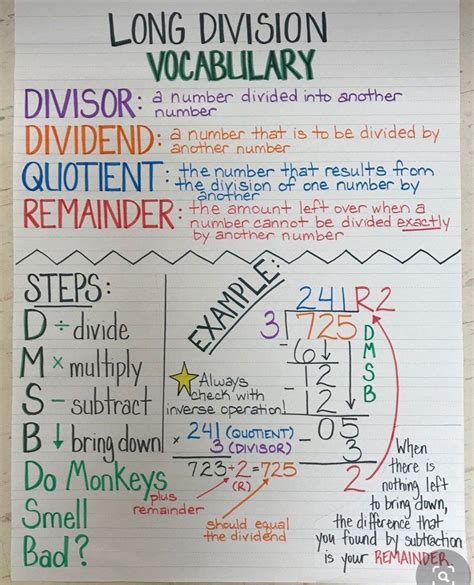 LONG DIVISION
VOCABULARY
DIVISOR: a number divided into another
number
DIVIDEND: a number that is to be divided by
another number
QUOTIENT: the number that results from
the division of one number by
another
REMAINDER: the amount left over when a
number cannot be divided exactly
by another number
STEPS:
D ÷ divide
M × multiply
S - subtract
B ↓ bring down
Do Monkeys
Smell
Bad?
EXAMPLE:
241 R2
3 725
- 6↓
12
- 12
- 05
3
2
D
M
S
B
Always
check with
inverse operation!
241 (QUOTIENT)
× 3 (DIVISOR)
723+2=725
(R)
plus
remainder
should equal
the dividend
When
there is
nothing left
to bring down,
the difference that
you found by subtraction
is your REMAINDER.